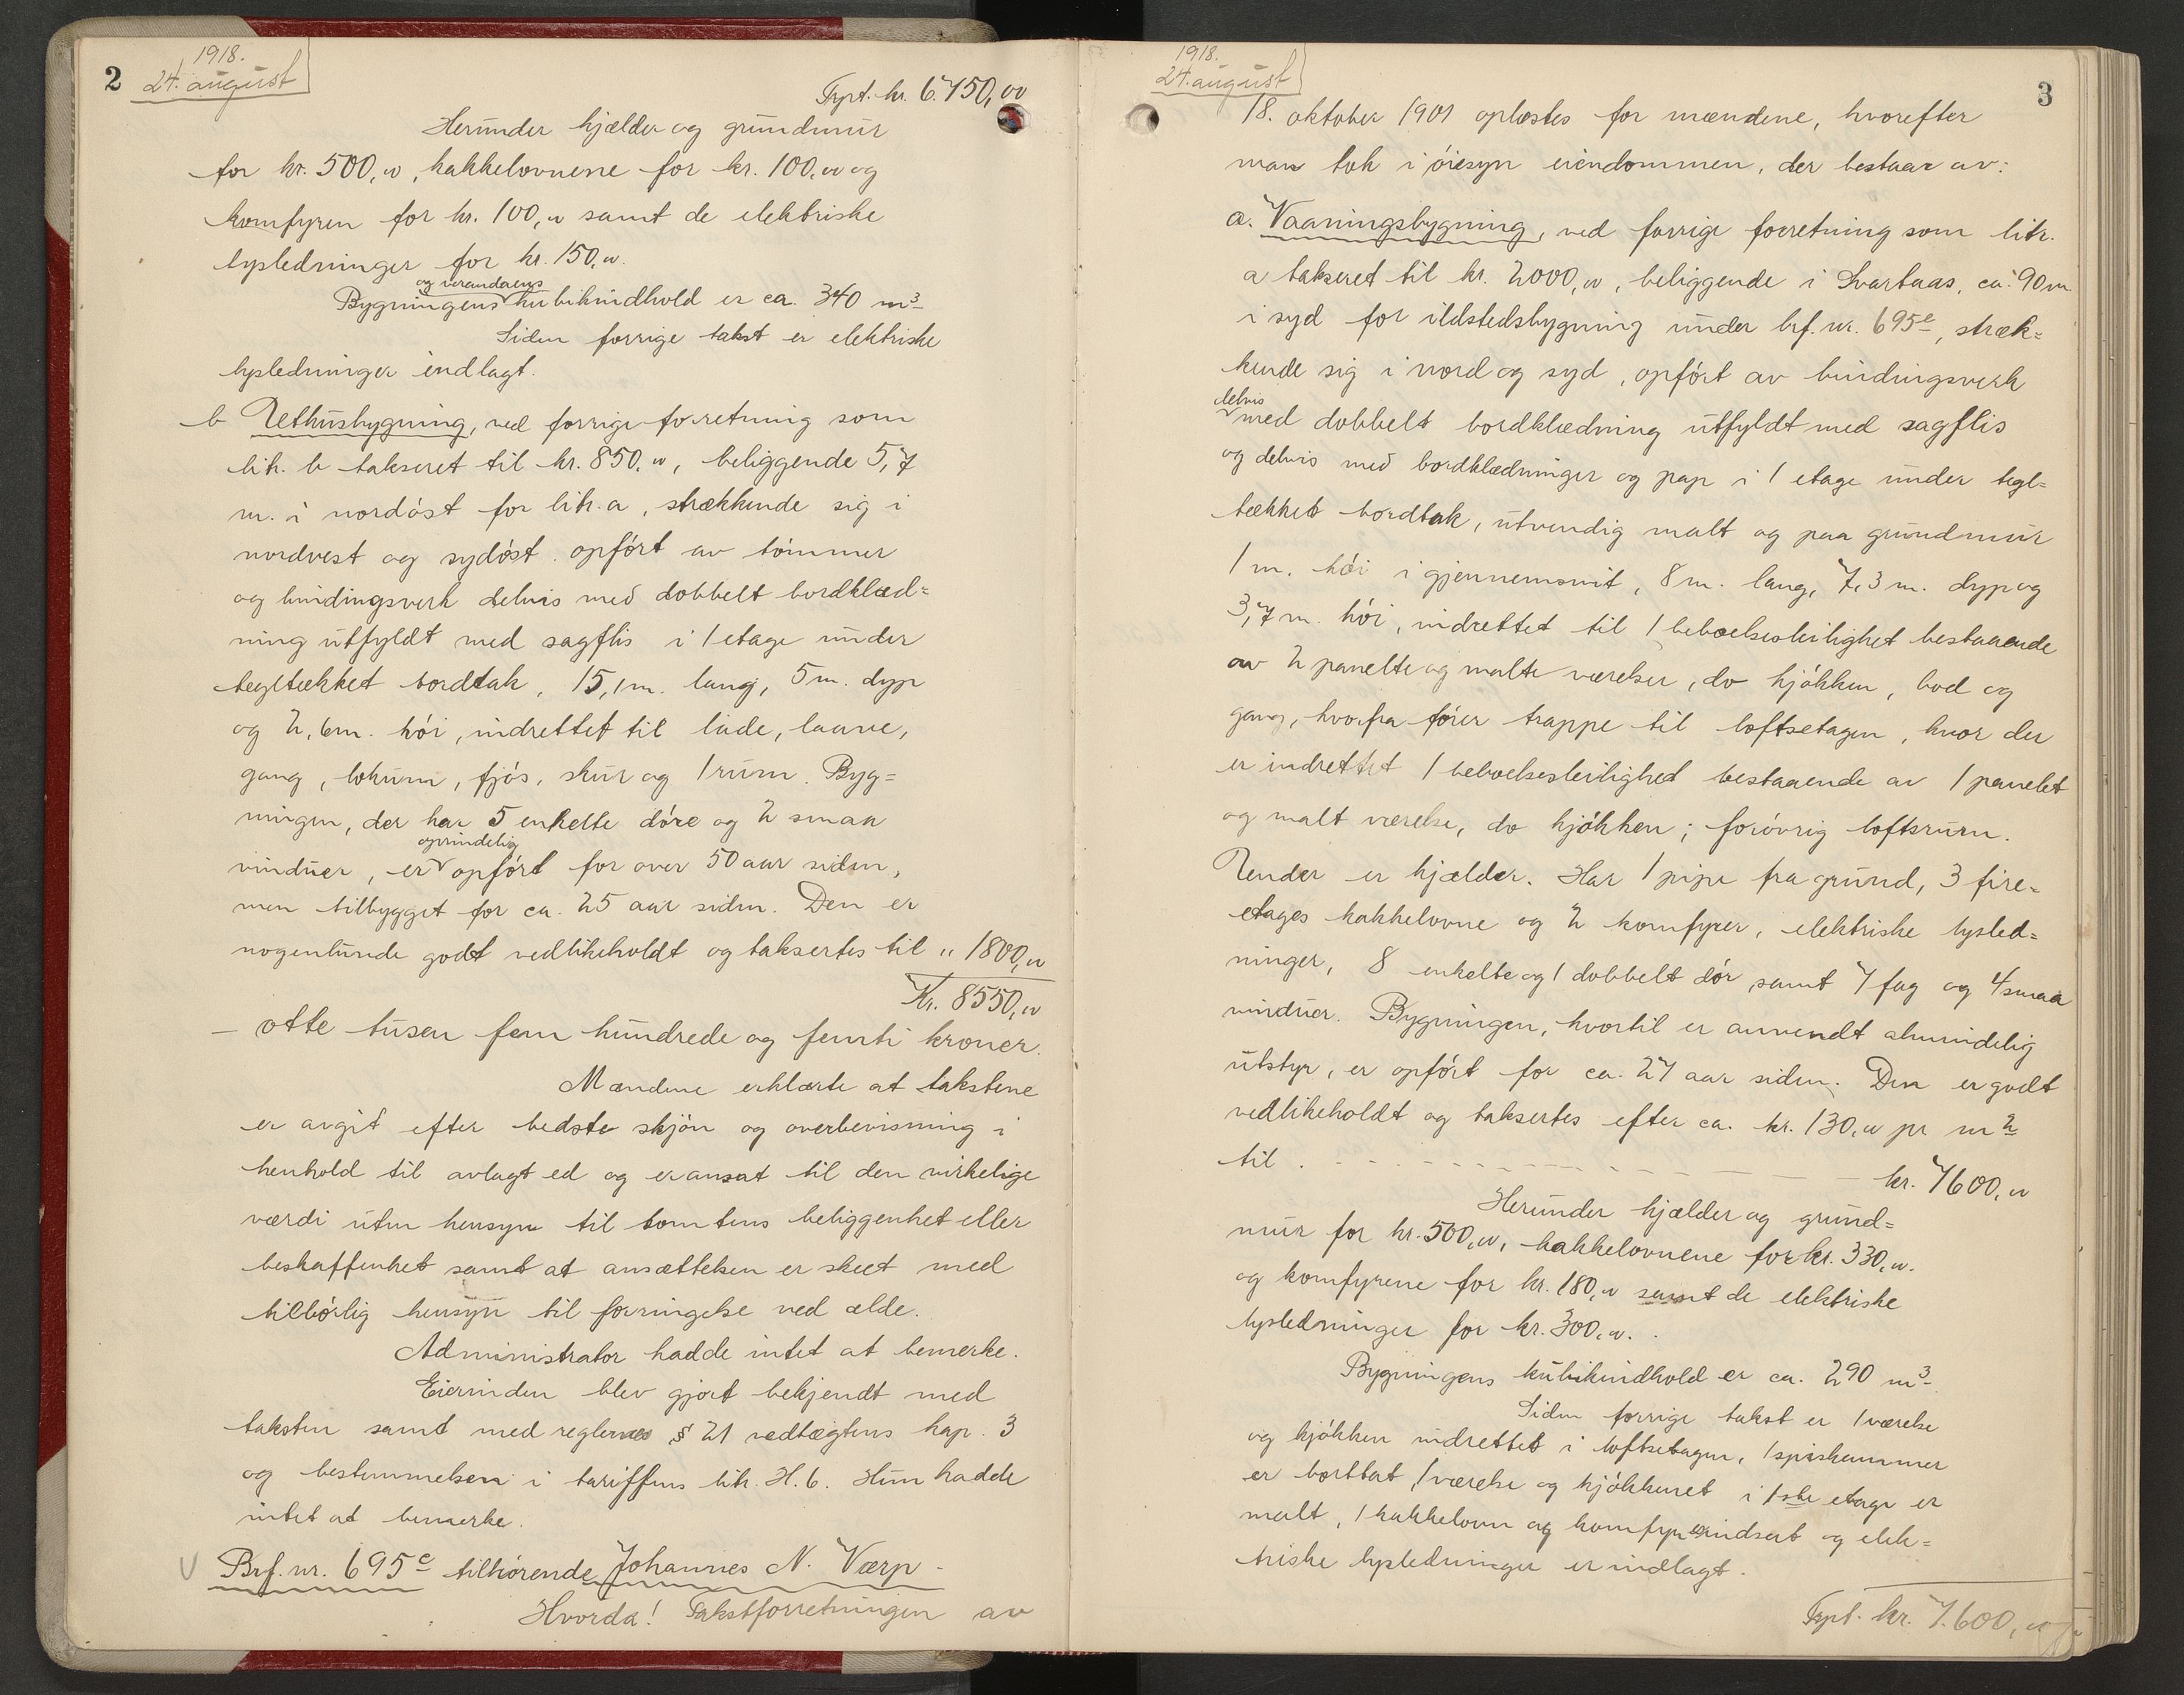 2
1918.
24. august
Trpt. kr. 6.750,00
Herunder kjælder og grundmur
for kr. 500,00, kakkelovnene for kr. 100,00 og
komfyren for kr. 100,00 samt de elektriske
lysledninger for kr. 150,00.
og verandaens
Bygningens kubikindhold er ca. 340 m³
Siden forrige takst er elektriske
lysledninger indlagt.
b Uthusbygning, ved forrige forretning som
litr. b takseret til kr. 850,00, beliggende 5,7
m. i nordöst for litr. a, strækkende sig i
nordvest og sydöst. opfört av tömmer
og bindingsverk delvis med dobbelt bordklæd=
ning utfyldt med sagflis i 1 etage under
tegltækket bordtak, 15,1 m. lang, 5 m. dyp
og 2,6 m. höi, indrettet til lade, laave,
gang, lokum, fjös, skur og 1 rum. Byg=
ningen, der har 5 enkelte döre og 2 smaa
oprindelig
vinduer, er opfört for over 50 aar siden,
men tilbygget for ca. 25 aar siden. Den er
nogenlunde godt vedlikeholdt og taksertes til „ 1800,00
Kr. 8550,00
— otte tusen fem hundrede og femti kroner.
Mændene erklærte at takstene
er avgit efter bedste skjön og overbevisning i
henhold til avlagt ed og er ansat til den virkelige
værdi uten hensyn til tomtens beliggenhet eller
beskaffenhet samt at ansættelsen er skeet med
tilbörlig hensyn til forringelse ved ælde.
Administrator hadde intet at bemerke.
Eierinden blev gjort bekjendt med
taksten samt med reglernes § 21 vedtægtens kap. 3
og bestemmelsen i tariffens litr. H. 6. Hun hadde
intet at bemerke.
V Brf. nr. 695c tilhörende Johannes N. Værp -
Hvorda! Takstforretningen av
1918.
24. august
3
18. oktober 1901 oplæstes for mændene, hvorefter
man tok i öiesyn eiendommen, der bestaar av:
a. Vaaningsbygning, ved forrige forretning som litr.
a takseret til kr. 2000,00, beliggende i Svartaas, ca. 90 m.
i syd for ildstedsbygning under brf. nr. 695e, stræk=
kende sig i nord og syd, opfört av bindingsverk
delvis
med dobbelt bordklædning utfyldt med sagflis
og delvis med bordklædninger og pap i 1 etage under tegl=
tækket bordtak, utvendig malt og paa grundmur
1 m. höi i gjennemsnit, 8 m. lang, 7,3 m. dyp og
3,7 m. höi, indrettet til 1 beboelsesleilighet bestaaende
av 2 panelte og malte værelser, do kjökken, bod og
gang, hvorfra förer trappe til loftsetagen, hvor der
er indrettet 1 beboelsesleilighed bestaaende av 1 panelet
og malt værelse, do kjökken; forövrig loftsrum.
Under er kjælder. Har 1 pipe fra grund, 3 fire=
etages kakkelovne og 2 komfyrer, elektriske lysled=
ninger, 8 enkelte og 1 dobbelt dör, samt 7 fag og 4 smaa
vinduer. Bygningen, hvortil er anvendt almindelig
utstyr, er opfört for ca. 27 aar siden. Den er godt
vedlikeholdt og taksertes efter ca. kr. 130,00 pr m²
til . kr. 7600,00
Herunder kjælder og grund=
mur for kr. 500,00, kakkelovnene for kr. 330,00.
og komfyrene for kr. 180,00 samt de elektriske
lysledninger for kr. 300,00.
Bygningens kubikindhold er ca. 290 m³
Siden forrige takst er 1 værelse
og kjökken indrettet i loftsetagen, 1 spiskammer
er borttat, 1 værelse og kjökkenet i 1ste etage er
malt, 1 kakkelovn og komfyr er indsat og elek=
triske lysledninger er indlagt.
Trpt. kr. 7.600,00